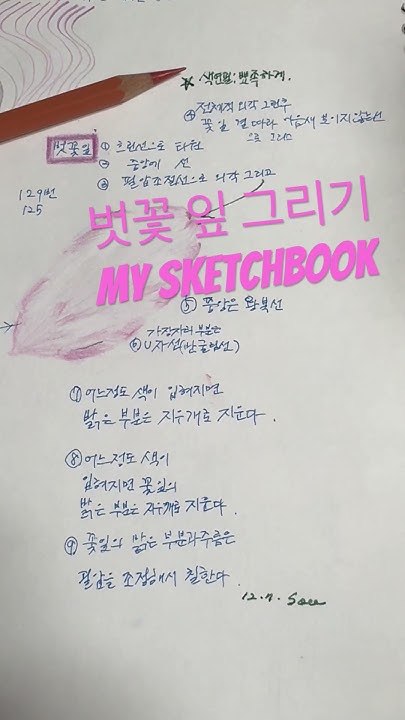 ★ 색연필: 뾰족하게.
④ 전체적 외각 그린후
꽃잎 결 따라 이음새 보이지 않는선
으로 그리기
벚꽃잎
① 흐린선으로 타원
② 중앙에 선
③ 필압조절선으로 외각 그리고
129번
125
벚꽃 잎 그리기
MY SKETCHBOOK
⑤ 중앙은 왕복선
가장자리 부분은
⑥ U자선(반굴림선)
⑦ 어느정도 색이 입혀지면
밝은 부분은 지우개로 지운다.
⑧ 어느정도 색이
입혀지면 꽃잎의
밝은 부분은 지우개로 지운다.
⑨ 꽃잎의 밝은 부분과 주름은
필압을 조절해서 칠한다.
12.7.